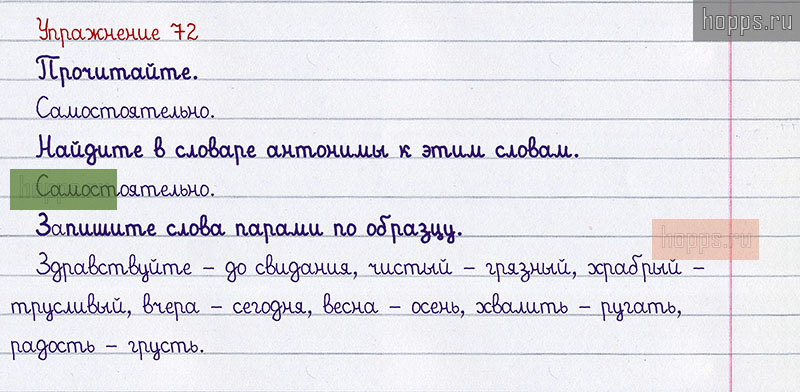 hopps.ru
Упражнение 72
Прочитайте.
Самостоятельно.
Найдите в словаре антонимы к этим словам.
Самостоятельно.
Запишите слова парами по образцу.
hopps.ru
Здравствуйте – до свидания, чистый – грязный, храбрый –
трусливый, вчера – сегодня, весна – осень, хвалить – ругать,
радость – грусть.